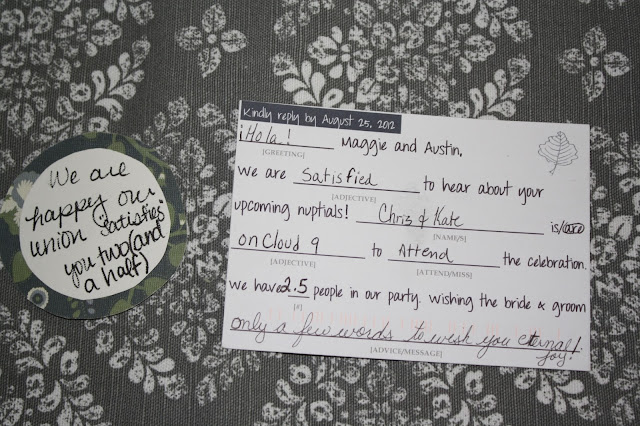 We are
happy our
union "satisfies"
you two (and
a half)
Kindly reply by August 25, 2012
¡Hola! Maggie and Austin,
[GREETING]
We are Satisfied to hear about your
[ADJECTIVE]
upcoming nuptials! Chris & Kate is/are
[NAME/S]
on Cloud 9 to Attend the celebration.
[ADJECTIVE] [ATTEND/MISS]
We have 2.5 people in our party. Wishing the bride & groom
[#]
only a few words to wish you eternal
joy!
[ADVICE/MESSAGE]